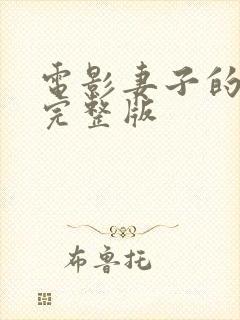 電影妻子的
完整版
布鲁托